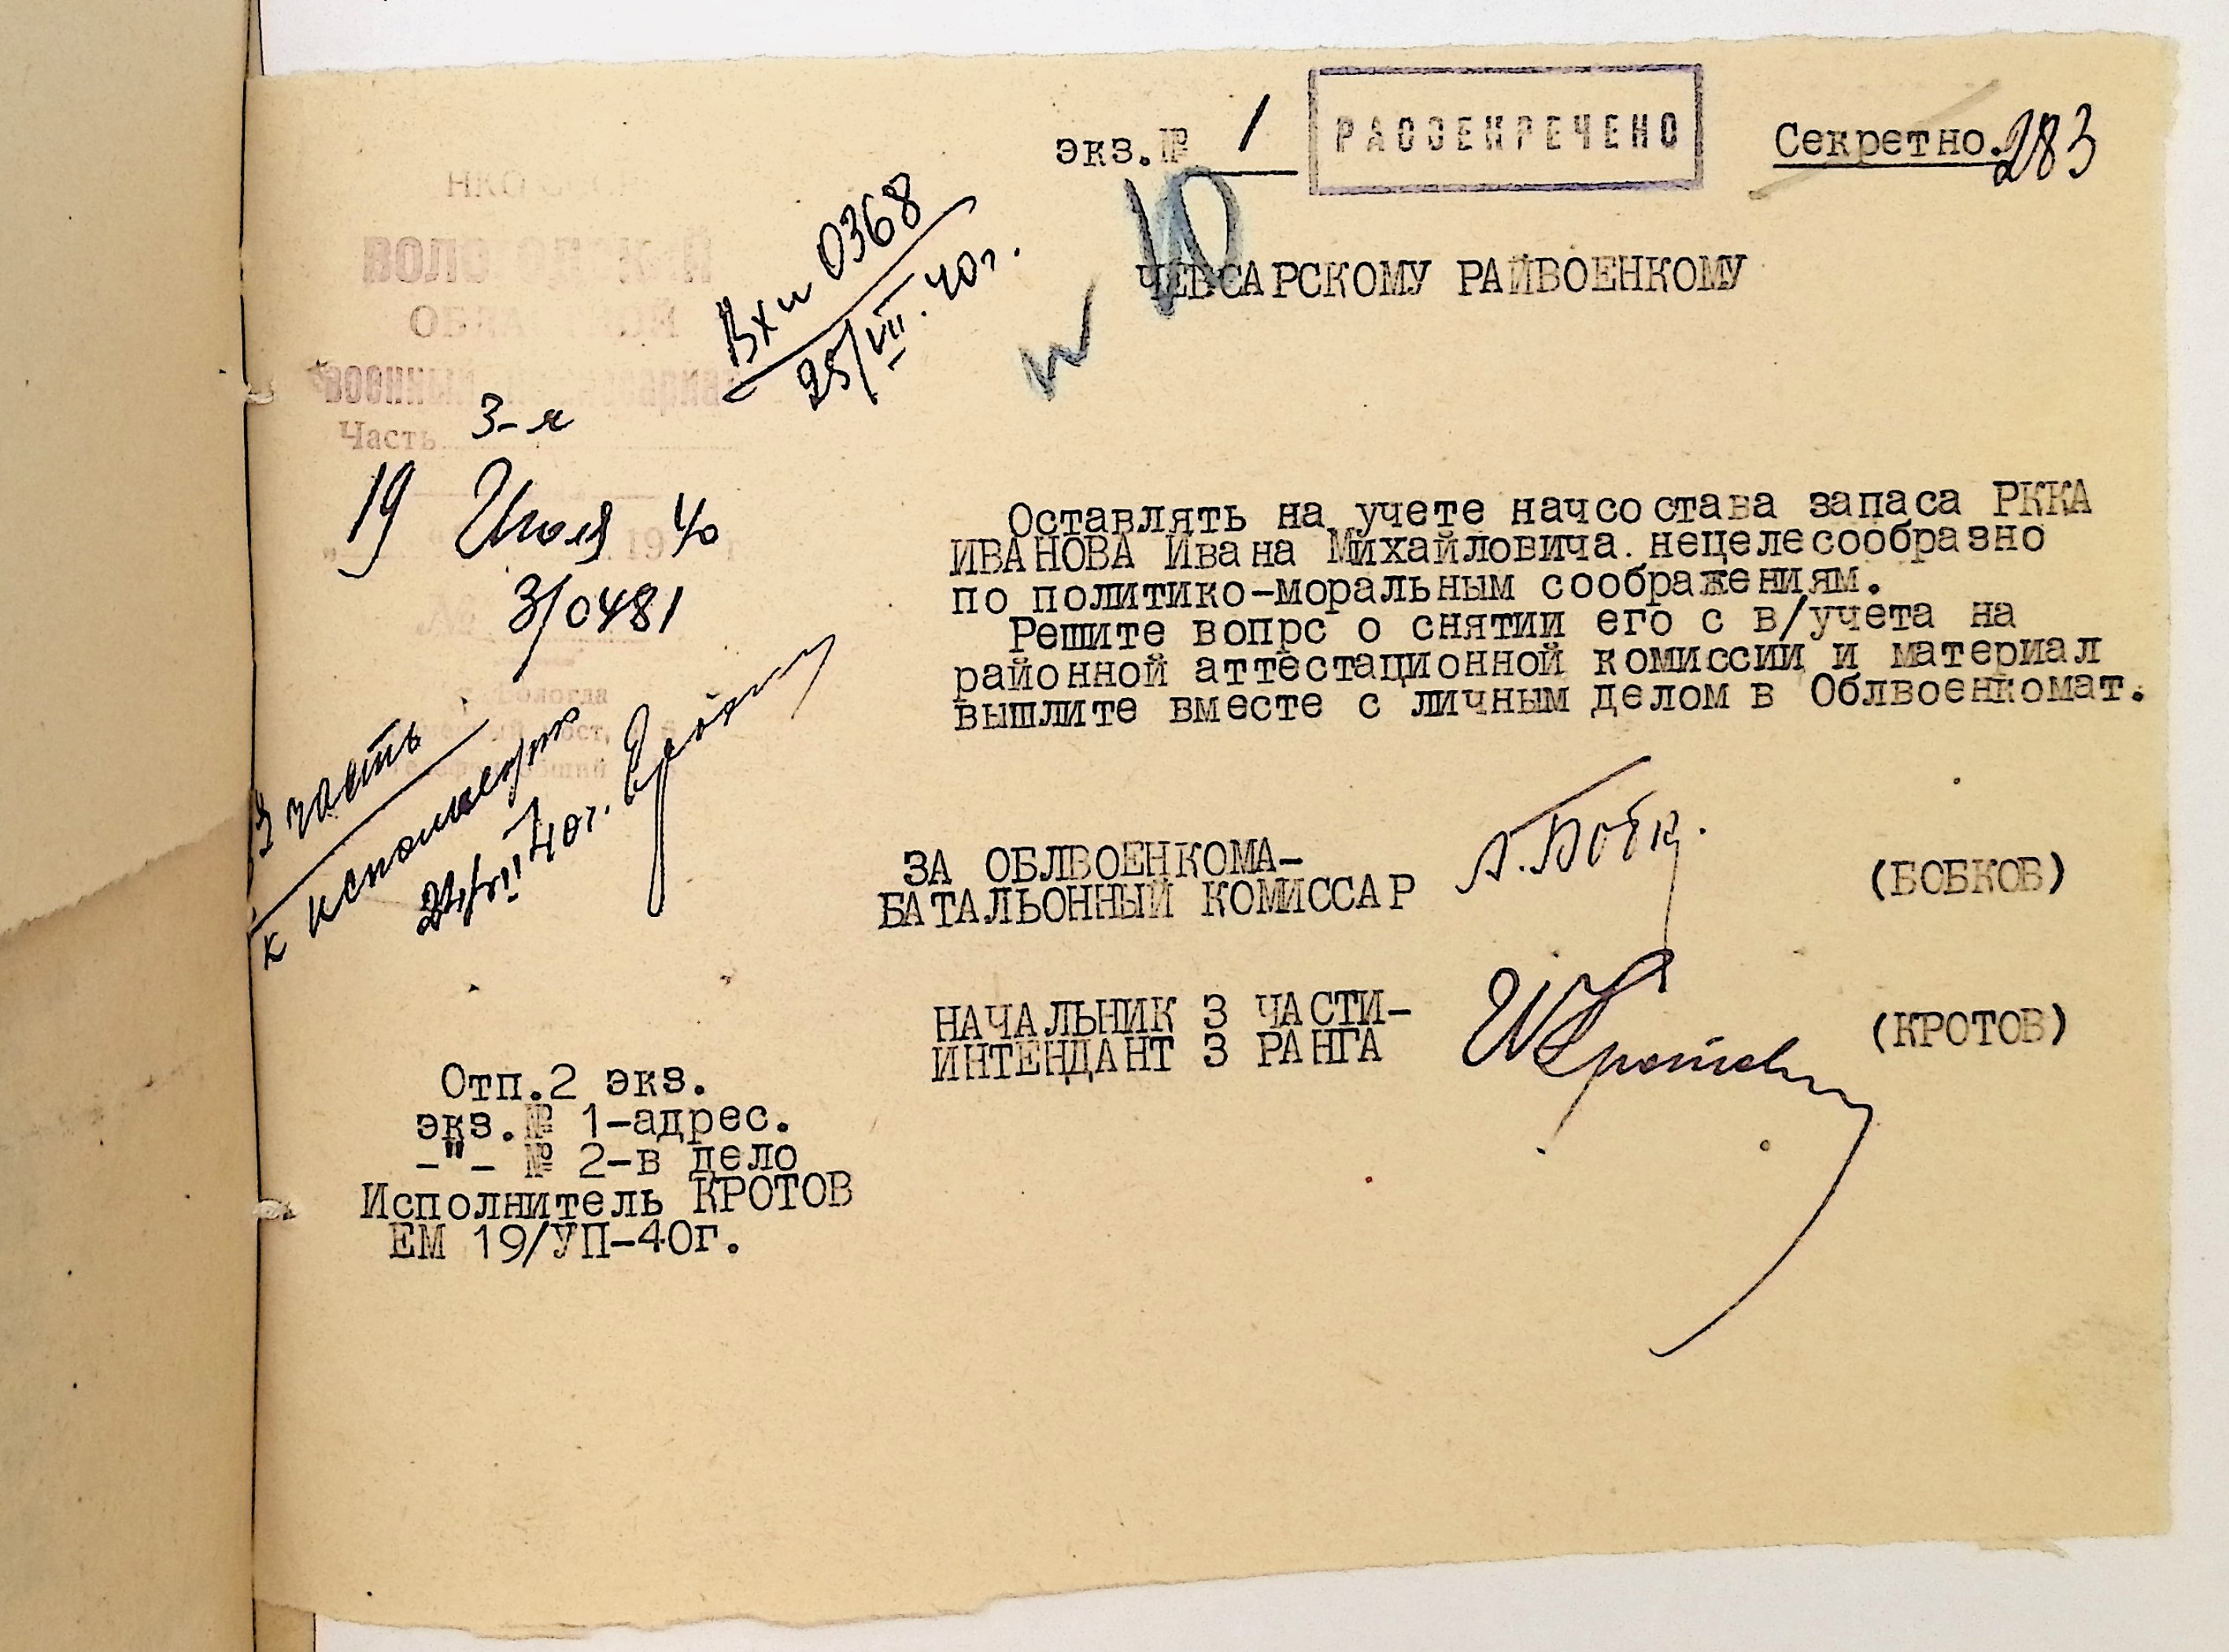 экз.№ 1
РАССЕКРЕЧЕНО
Секретно.
283
НКО
ВОЛОГОДСКИЙ
ОБЛАСТНОЙ
Военный комиссариат
Часть 3-я
19 Июля 1940
3/0481
Вологда
Вх 0368
25/VII.40г.
10
ЧЕБСАРСКОМУ РАЙВОЕНКОМУ
Оставлять на учете начсостава запаса РККА
ИВАНОВА Ивана Михайловича нецелесообразно
по политико-моральным соображениям.
Решите вопрс о снятии его с в/учета на
районной аттестационной комиссии и материал
вышлите вместе с личным делом в Облвоенкомат.
3 часть
к исполнению
24/VII 40г.
ЗА ОБЛВОЕНКОМА-
БАТАЛЬОННЫЙ КОМИССАР
(БОБКОВ)
НАЧАЛЬНИК 3 ЧАСТИ-
ИНТЕНДАНТ 3 РАНГА
(КРОТОВ)
Отп.2 экз.
экз.№ 1-адрес.
-"- № 2-в дело
Исполнитель КРОТОВ
ЕМ 19/УП-40г.